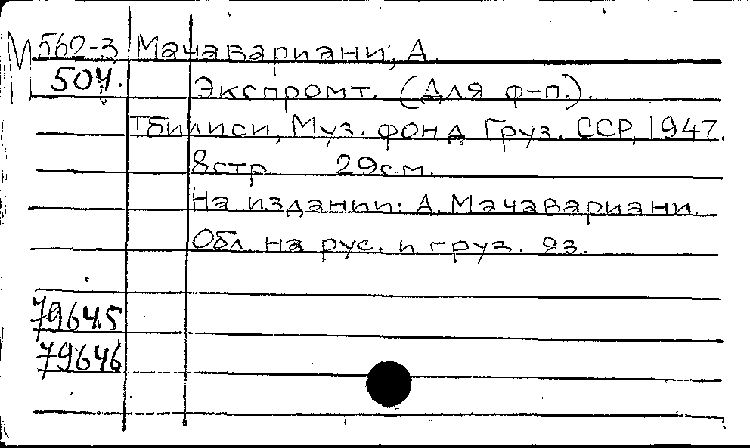 М 562-3 Мачавариани, А.
507. Экспромт. (Для ф-п.).
Тбилиси, Муз. фонд Груз. ССР, 1947.
8стр 29см.
На издании: А. Мачавариани.
Обл. на рус. и груз. яз.
79645
79646